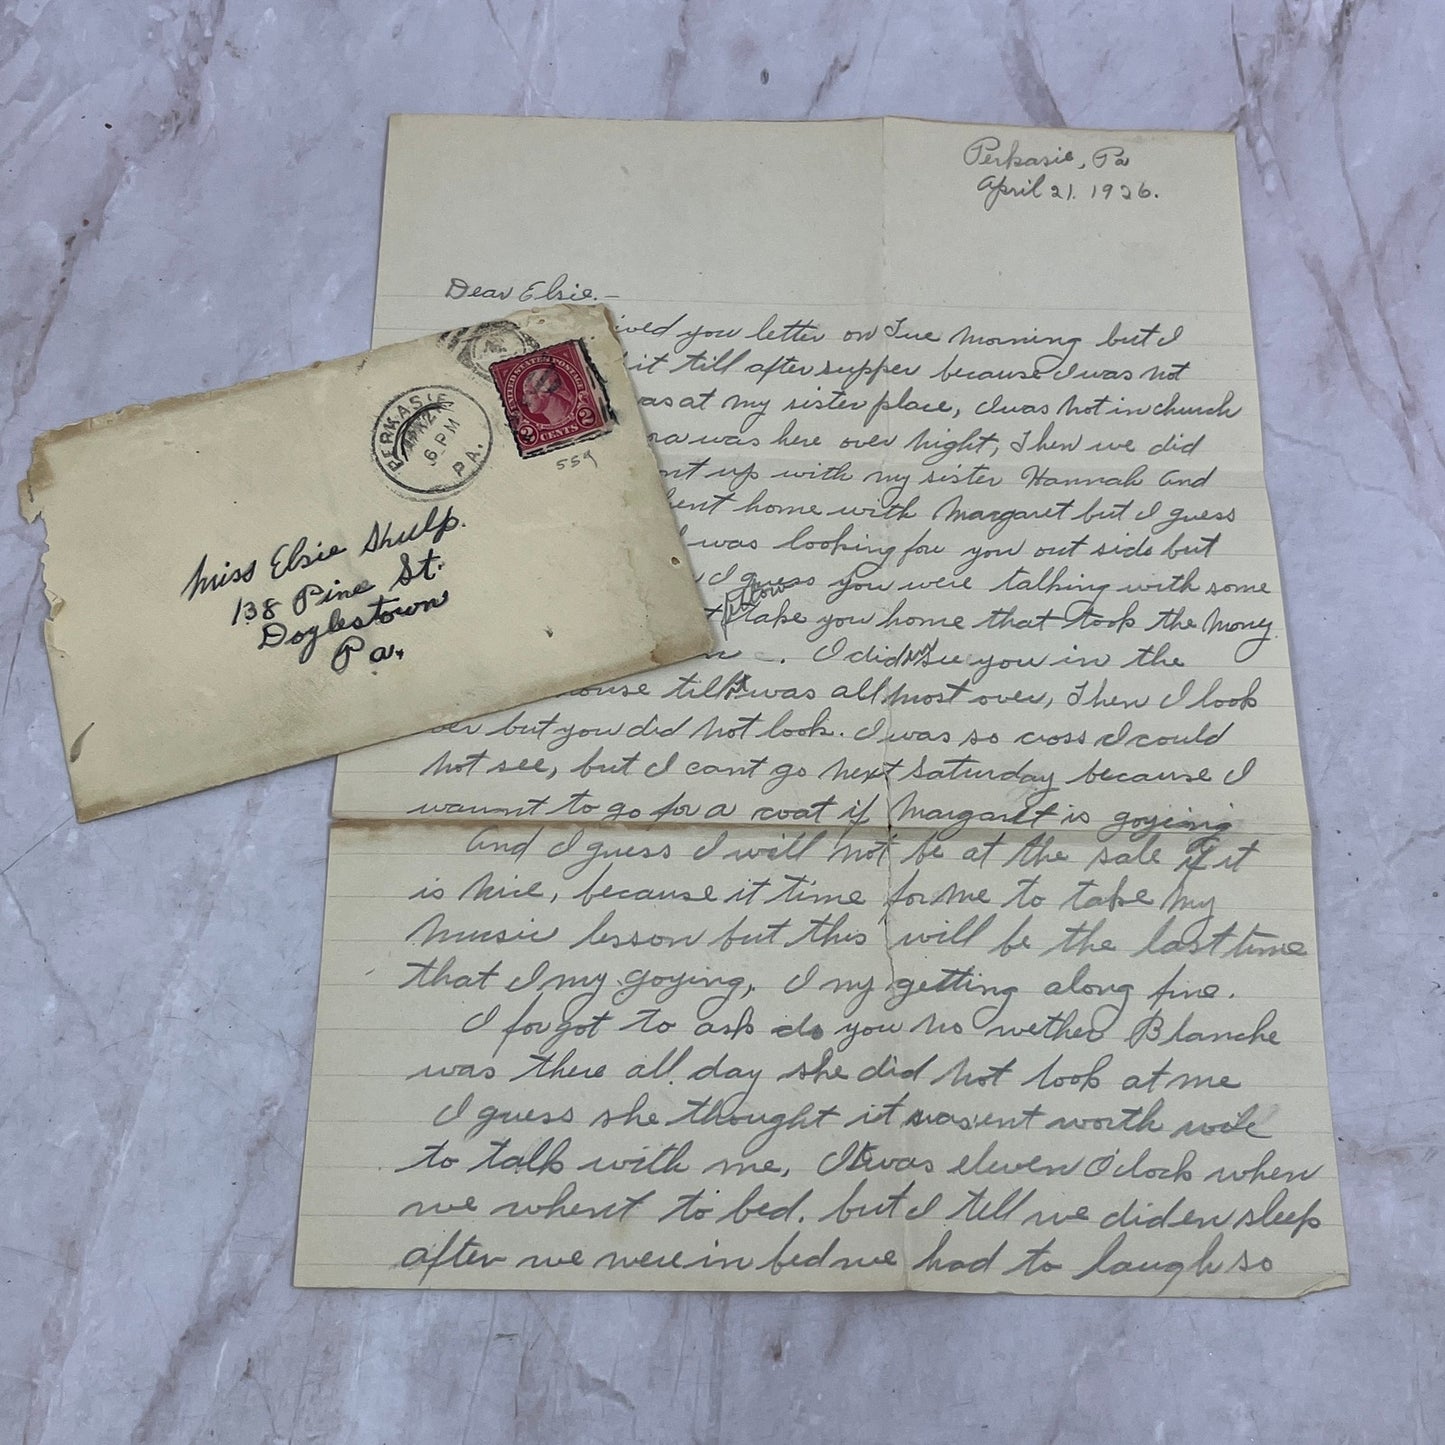 Perkasie, Pa
April 21. 1926.
Dear Elsie.—
ived you letter on Tue morning but I
it till after supper because I was not
as at my sister place, I was not in church
ra was here over night, Then we did
nt up with my sister Hannah and
hent home with Margaret but I guess
I was looking for you out side but
I guess you were talking with some
fellow
t take you home that took the mony
. I did not see you in the
ouse till it was all most over, Then I look
ver but you did not look. I was so cross I could
not see, but I cant go next Saturday because I
waunt to go for a coat if Margaret is goying
And I guess I will not be at the sale if it
is nice, because it time for me to take my
music lesson but this will be the last time
that I my goying, I my getting along fine.
I forgot to ask do you no wether Blanche
was there all day she did not look at me
I guess she thought it was'ent worth wile
to talk with me, It was eleven O'clock when
we whent to bed. but I tell we diden sleep
after we were in bed we had to laugh so
PERKASIE
6 PM
PA.
UNITED STATES POSTAGE
2 CENTS 2
559
Miss Elsie Shulp.
138 Pine St.
Doylestown
Pa.